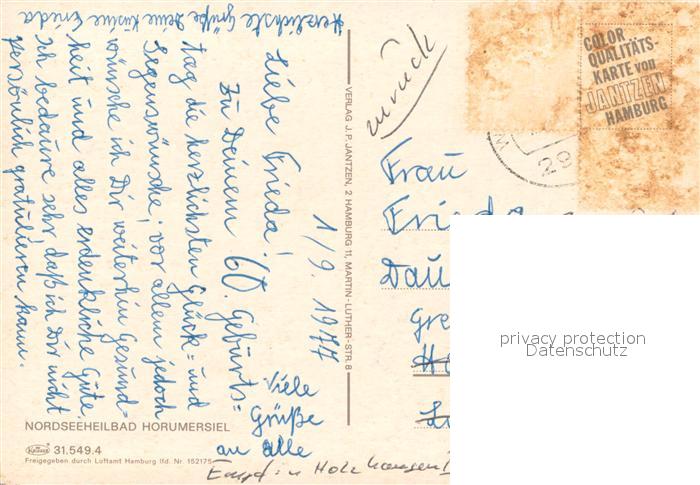 1/9. 1977
Liebe Frieda!
Zu Deinem 60. Geburts=
tag die herzlichsten Glück= und
Segenswünsche; vor allem jedoch
wünsche ich Dir weiterhin Gesund=
heit und alles erdenkliche Gute.
Ich bedaure sehr, daß ich Dir nicht
persönlich gratulieren kann.
Herzlichste Grüße Deine Kusine Frieda
Viele
Grüße
an alle
NORDSEEHEILBAD HORUMERSIEL
Krüger 31.549.4
Freigegeben durch Luftamt Hamburg lfd. Nr. 152175
VERLAG J. P. JANTZEN, 2 HAMBURG 11, MARTIN-LUTHER-STR. 8
zurück
COLOR
QUALITÄTS-
KARTE von
JANTZEN
HAMBURG
29
Frau
Frieda
Dau
Gre
privacy protection
Datenschutz